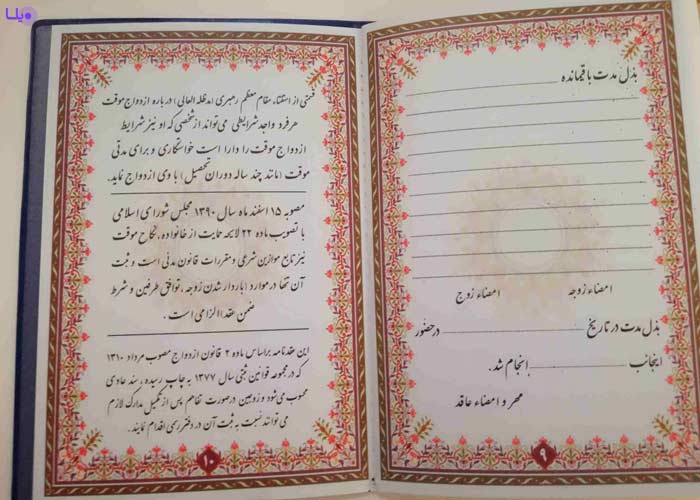 ویلا
بذل مدت باقیمانده
امضاء زوجه امضاء زوج
بذل مدت در تاریخ در حضور
اینجانب انجام شد.
مهر و امضاء عاقد
۹
قسمتی از استفتاء مقام معظم رهبری (مدظله العالی) درباره ازدواج موقت
هر فرد واجد شرایطی می‌تواند از شخصی که او نیز شرایط
ازدواج موقت را دارا است خواستگاری و برای مدتی
موقت (مانند چند ساله دوران تحصیل) با وی ازدواج نماید.
مصوبه ۱۵ اسفند ماه سال ۱۳۹۰ مجلس شورای اسلامی
با تصویب ماده ۲۲ لایحه حمایت از خانواده، نکاح موقت
نیز تابع موازین شرعی و مقررات قانون مدنی است و ثبت
آن تنها در موارد (باردار شدن زوجه، توافق طرفین و شرط
ضمن عقد) الزامی است.
این عقدنامه براساس ماده ۲ قانون ازدواج مصوب مرداد ۱۳۱۰
که در مجموعه قوانین ثبتی سال ۱۳۷۷ به چاپ رسیده، سند عادی
محسوب می‌شود و زوجین در صورت تفاهم پس از تکمیل مدارک لازم
می‌توانند نسبت به ثبت آن در دفتر رسمی اقدام نمایند.
۱۰